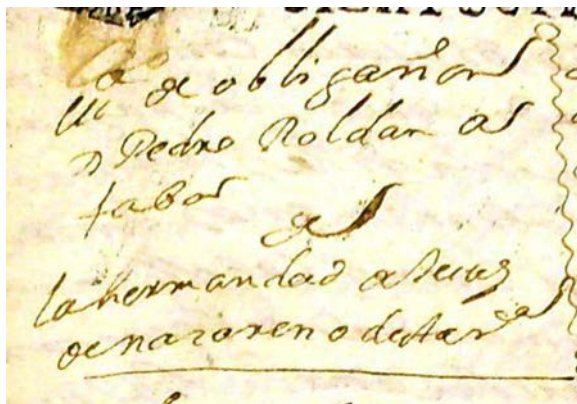 de obligaçion
Pedro Roldan
fabor
de
la hermandad de Jesus
de nazareno desta